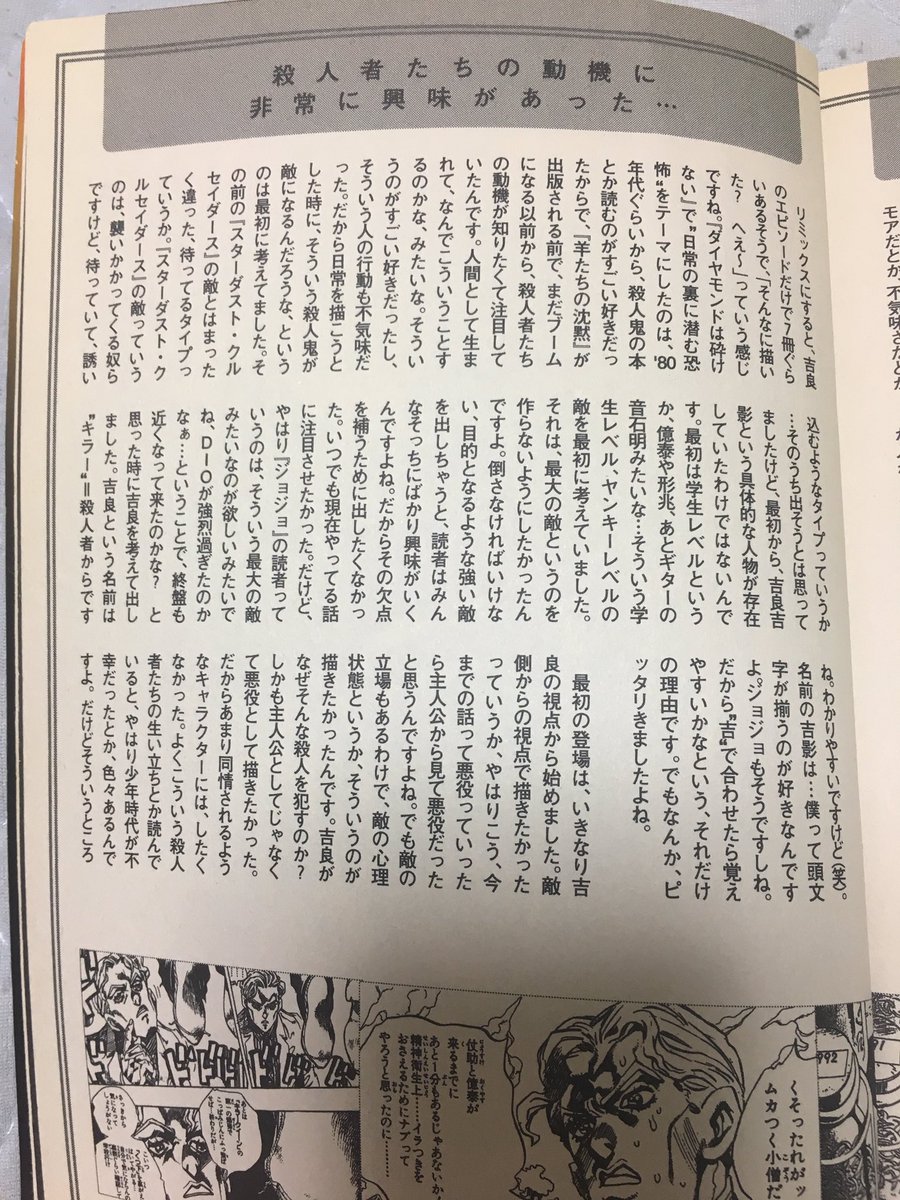 殺人者たちの動機に
非常に興味があった…
リミックスにすると、吉良
のエピソードだけで7冊ぐら
いあるそうで、「そんなに描い
た? へえ〜」っていう感じ
ですね。『ダイヤモンドは砕け
ない』で〝日常の裏に潜む恐
怖〟をテーマにしたのは、'80
年代ぐらいから、殺人鬼の本
とか読むのがすごい好きだっ
たからで、『羊たちの沈黙』が
出版される前で、まだブーム
になる以前から、殺人者たち
の動機が知りたくて注目して
いたんです。人間として生ま
れて、なんでこういうことす
るのかな、みたいな。そうい
うのがすごい好きだったし、
そういう人の行動も不気味だ
った。だから日常を描こうと
した時に、そういう殺人鬼が
敵になるんだろうな、という
のは最初に考えてました。そ
の前の『スターダスト・クル
セイダース』の敵とはまった
く違った、待ってるタイプっ
ていうか。『スターダスト・ク
ルセイダース』の敵っていう
のは、襲いかかってくる奴ら
ですけど、待っていて、誘い
込むようなタイプっていうか
…そのうち出そうとは思って
ましたけど、最初から、吉良吉
影という具体的な人物が存在
していたわけではないんで
す。最初は学生レベルという
か、億泰や形兆、あとギターの
音石明みたいな…そういう学
生レベル、ヤンキーレベルの
敵を最初に考えていました。
それは、最大の敵というのを
作らないようにしたかったん
ですよ。倒さなければいけな
い、目的となるような強い敵
を出しちゃうと、読者はみん
なそっちにばかり興味がいく
んですよね。だからその欠点
を補うために出したくなかっ
た。いつでも現在やってる話
に注目させたかった。だけど、
やはり『ジョジョ』の読者って
いうのは、そういう最大の敵
みたいなのが欲しいみたいで
ね、DIOが強烈過ぎたのか
なぁ…ということで、終盤も
近くなって来たのかな? と
思った時に吉良を考えて出し
ました。吉良という名前は
〝キラー〟=殺人者からです
ね。わかりやすいですけど(笑)。
名前の吉影は…僕って頭文
字が揃うのが好きなんです
よ。ジョジョもそうですしね。
だから〝吉〟で合わせたら覚え
やすいかなという、それだけ
の理由です。でもなんか、ピ
ッタリきましたよね。
最初の登場は、いきなり吉
良の視点から始めました。敵
側からの視点で描きたかった
っていうか、やはりこう、今
までの話って悪役っていった
ら主人公から見て悪役だった
と思うんですよね。でも敵の
立場もあるわけで、敵の心理
状態というか、そういうのが
描きたかったんです。吉良が
なぜそんな殺人を犯すのか?
しかも主人公としてじゃなく
て悪役として描きたかった。
だからあまり同情されるよう
なキャラクターには、したく
なかった。よくこういう殺人
者たちの生い立ちとか読んで
いると、やはり少年時代が不
幸だったとか、色々あるんで
すよ。だけどそういうところ
くそったれがッ
ムカつく小僧だ
仗助と億泰が
来るまでに
あと1分もあるじゃあないか、
精神衛生上……イラつきを
おさえるためにナブって
やろうと思ったのに……
ドドドド
992